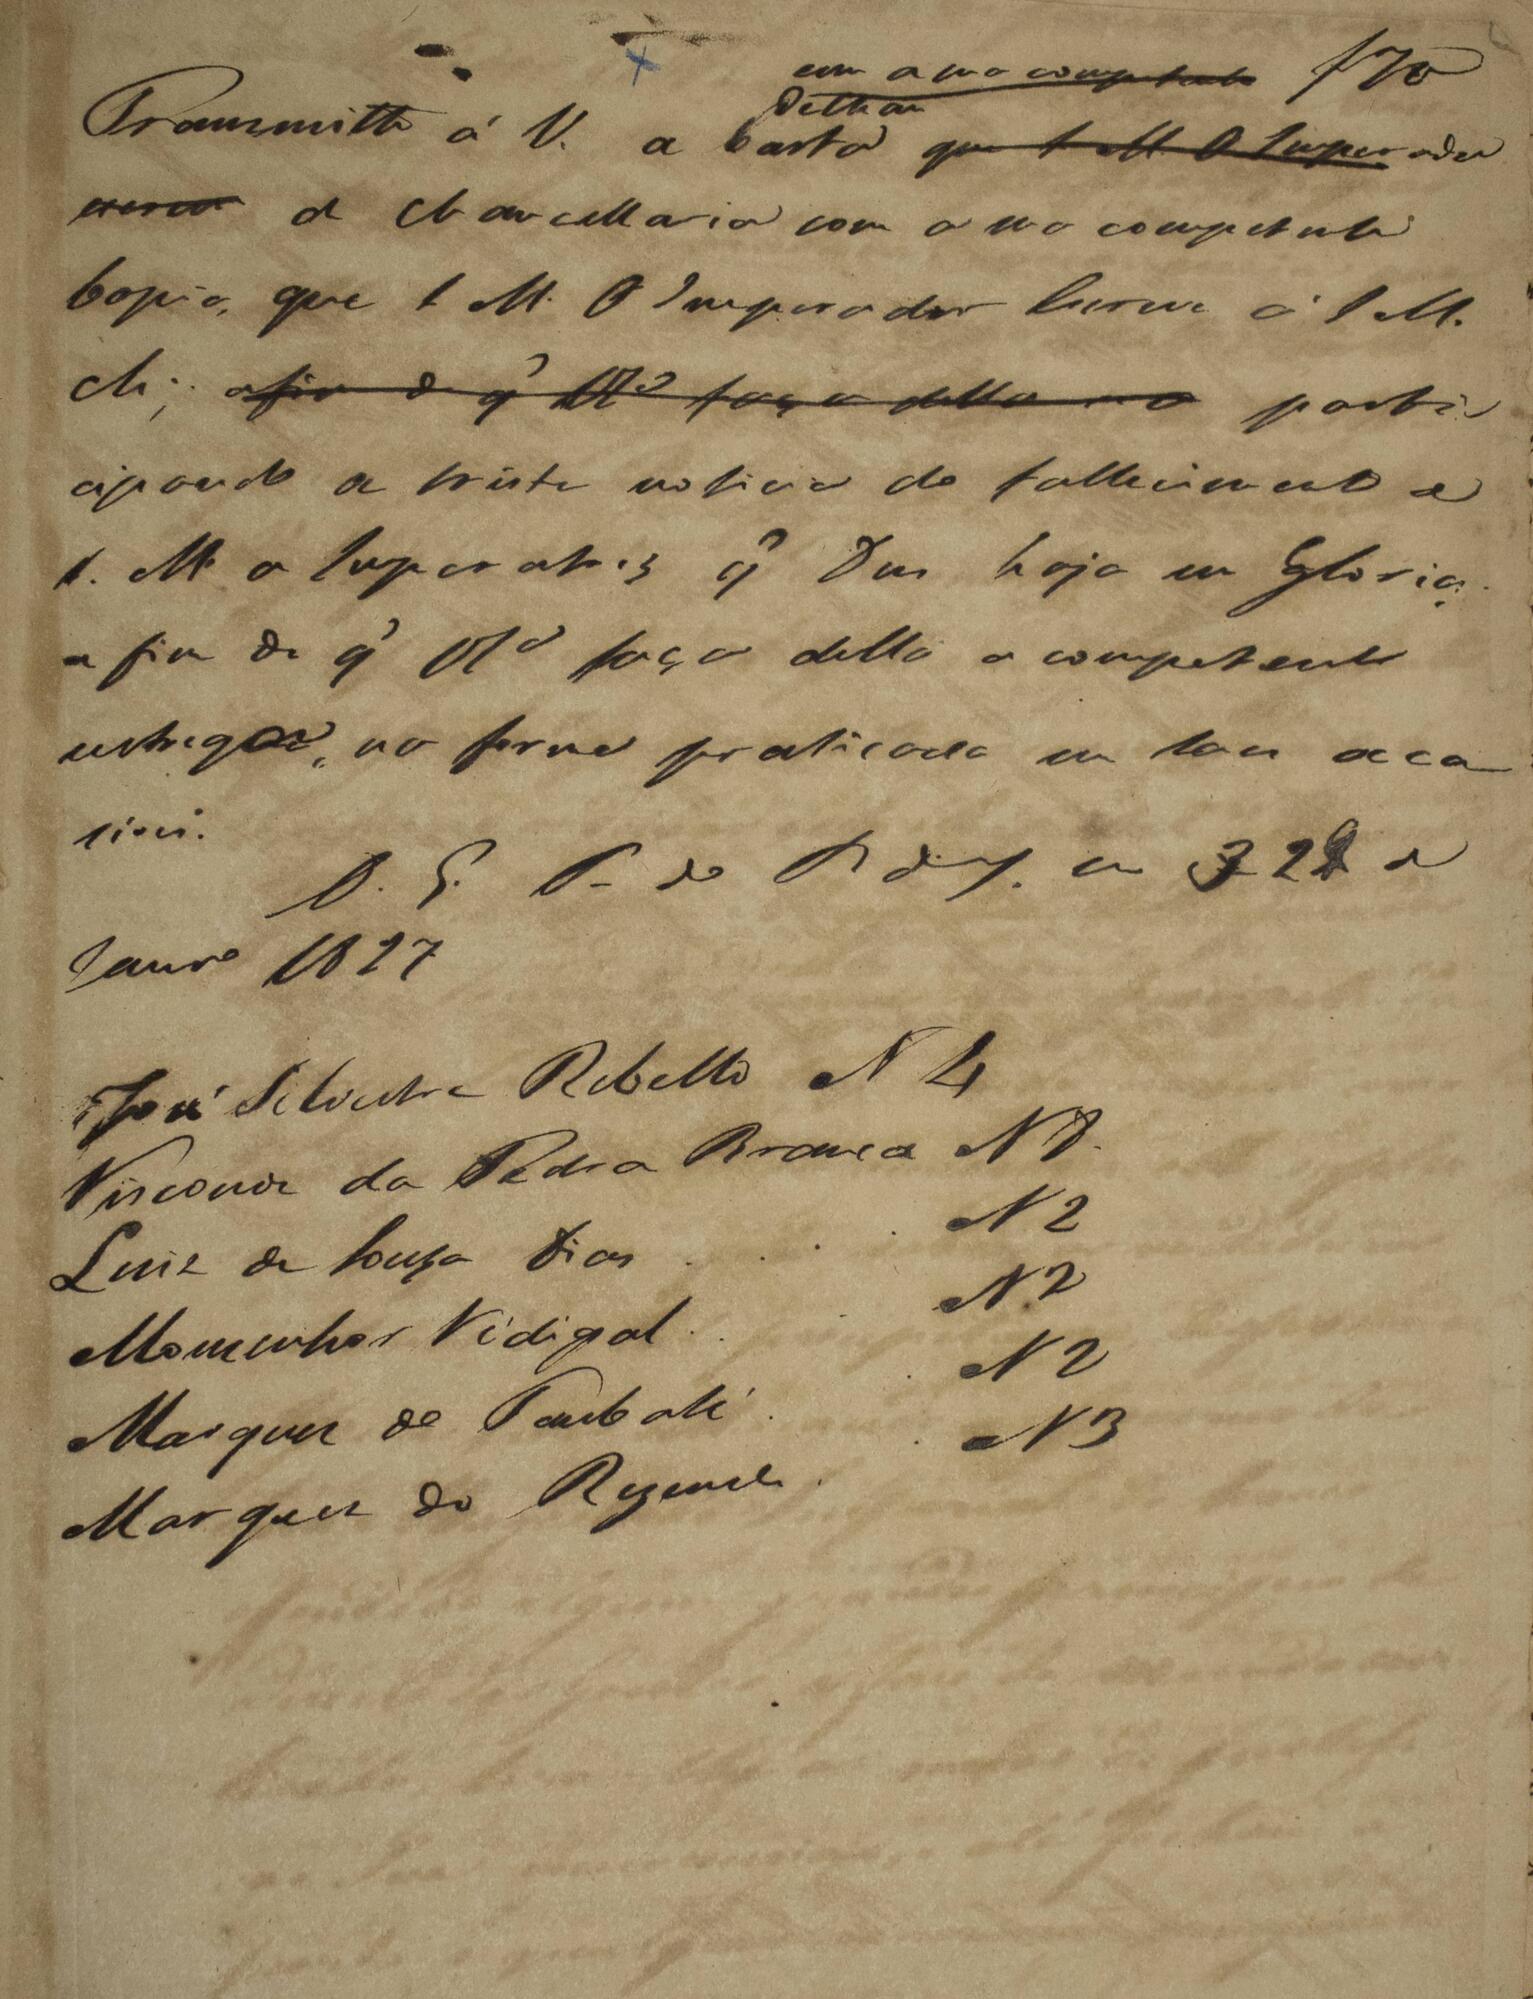 com a sua competente
Transmitto á V. a Carta que S. M. O Imperador
escreve de Chancellaria com a sua competente
Copia, que S. M. O Imperador escreve á S. M.
Ch; afim de q' V. S.ª faça della sua parti
cipando a triste noticia do fallecimento de
S. M. a Imperatriz q' Deus haja em Gloria,
a fim de q' V. S.ª faça della a competente
entrega, na forma praticada em taes occa
siões.
D. G. P. do R de J. em 22 de
Janro 1827
José Silvestre Rebello N 4
Visconde da Pedra Branca N 8.
Luiz de Souza Dias . . . N 2
Monsenhor Vidigal . . . N 2
Marquez de Taubaté . . N 2
Marquez de Rezende . . N 3